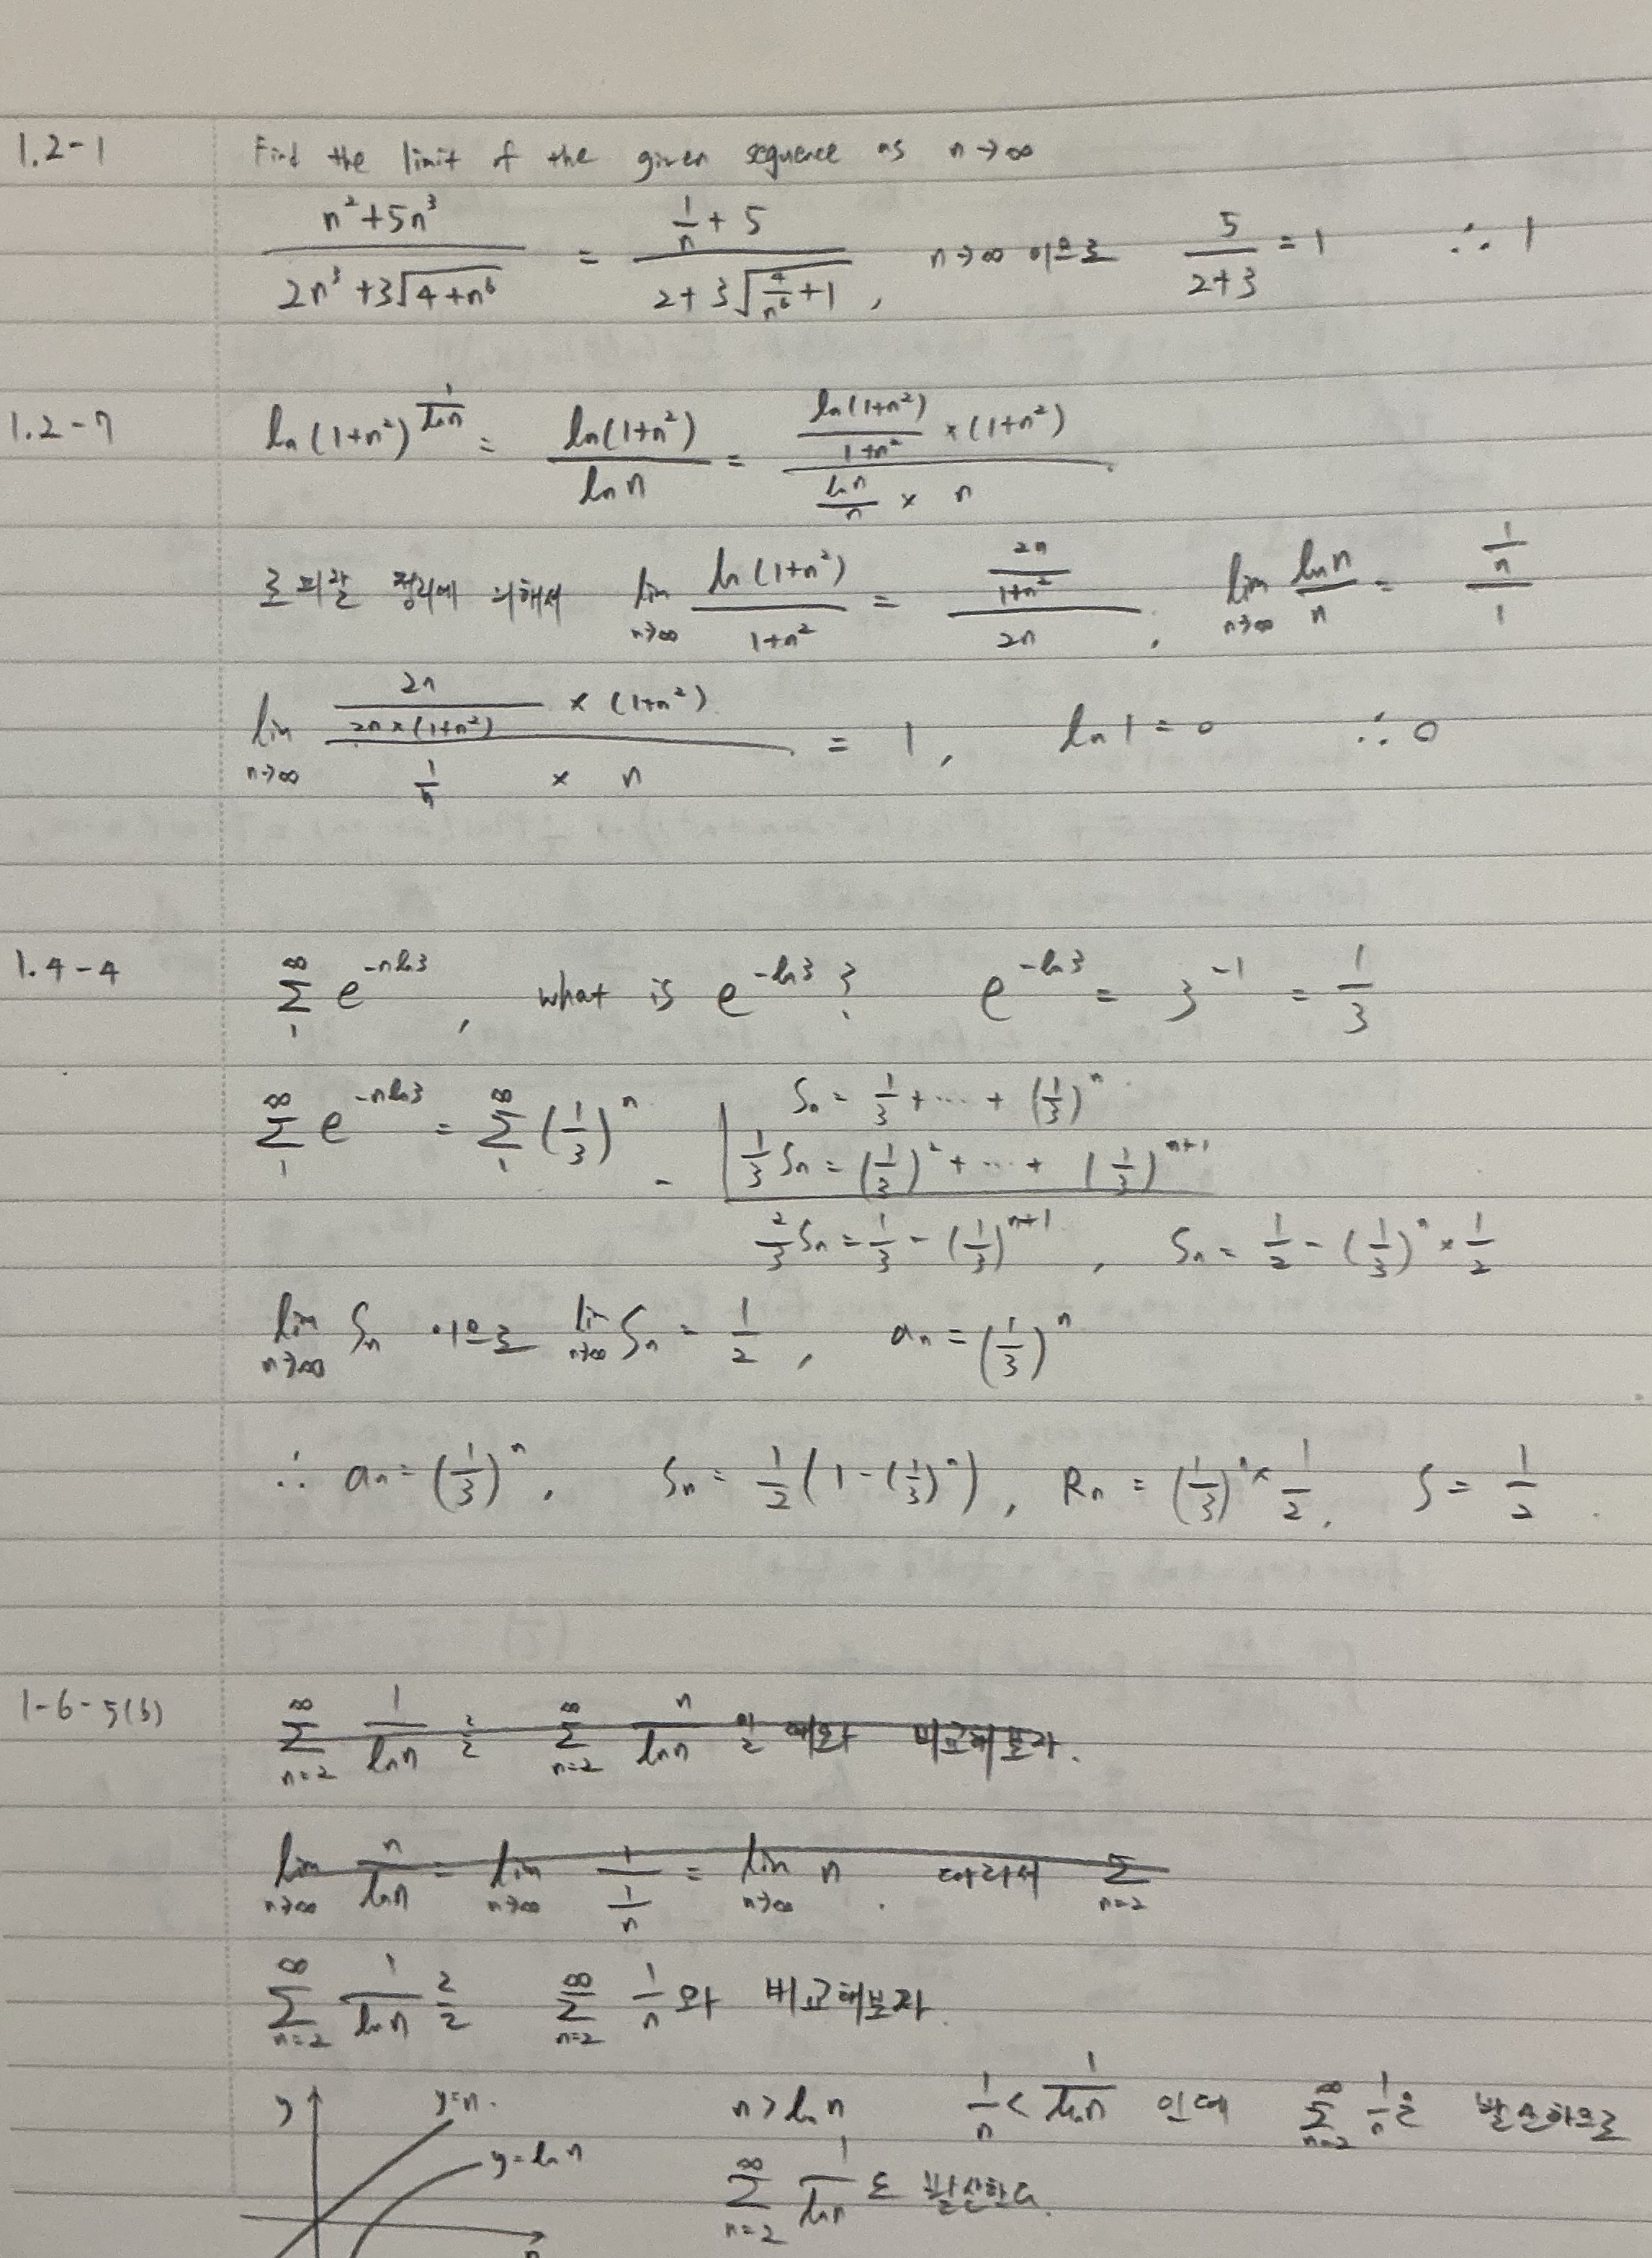 1.2-1 Find the limit of the given sequence as n→∞
(n²+5n³)/(2n³+3√(4+n⁶)) = (1/n + 5)/(2+3√(4/n⁶+1)), n→∞ 이므로 5/(2+3) = 1 ∴ 1
1.2-7 ln(1+n²)^(1/ln n) = ln(1+n²)/ln n = (ln(1+n²)/(1+n²) × (1+n²))/(ln n/n × n)
로피탈 정리에 의해서 lim n→∞ ln(1+n²)/(1+n²) = (2n/(1+n²))/2n, lim n→∞ ln n/n = (1/n)/1
lim n→∞ (2n/(2n×(1+n²)) × (1+n²))/(1/n × n) = 1, ln 1 = 0 ∴ 0
1.4-4 ∞ Σ 1 e^(-n ln3), what is e^(-ln3)? e^(-ln3) = 3^(-1) = 1/3
∞ Σ 1 e^(-n ln3) = ∞ Σ 1 (1/3)^n
Sn = 1/3 + ⋯ + (1/3)^n
- 1/3 Sn = (1/3)² + ⋯ + (1/3)^(n+1)
2/3 Sn = 1/3 - (1/3)^(n+1), Sn = 1/2 - (1/3)^n × 1/2
lim n→∞ Sn 이므로 lim n→∞ Sn = 1/2, an = (1/3)^n
∴ an = (1/3)^n, Sn = 1/2(1-(1/3)^n), Rn = (1/3)^n × 1/2, S = 1/2.
1-6-5(b) ∞ Σ n=2 1/ln n 를 ∞ Σ n=2 n/ln n 비교해보자.
lim n→∞ n/ln n = lim n→∞ 1/(1/n) = lim n→∞ n. 따라서 Σ n=2
∞ Σ n=2 1/ln n 를 ∞ Σ n=2 1/n 와 비교해보자.
y y=n. n > ln n 1/n < 1/ln n 인데 ∞ Σ n=2 1/n 은 발산하므로
y=ln n ∞ Σ n=2 1/ln n 도 발산한다.
n